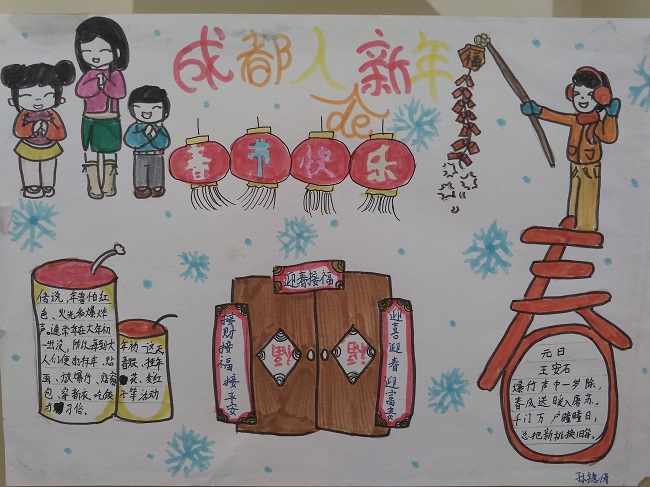 成都人新年
de
福
春节快乐
传说,年兽怕红
色、火光和爆炸
声,通常在大年初
一出没,所以每到大
人们便
画、放爆竹、贴窗
包、穿新衣、吃饺
习俗。
年初一这天
春联、挂年
花、发红
子等活动
迎春接福
接财接福接平安
迎喜迎春迎富贵
福
福
春
元日
王安石
爆竹声中一岁除,
春风送暖入屠苏。
千门万户曈曈日,
总把新桃换旧符。